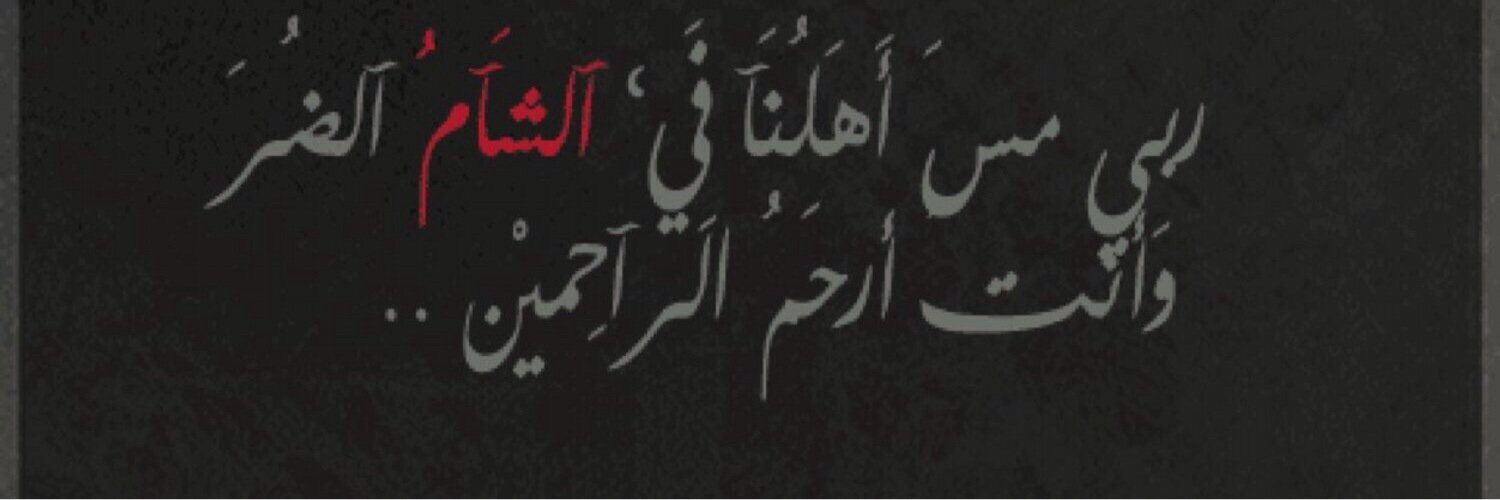 ربي مسَ أَهَلُنَآ فَي، آلشَآمُ آلضُرَ
وَأنت أرحَمُ الَرآحِميْن ..